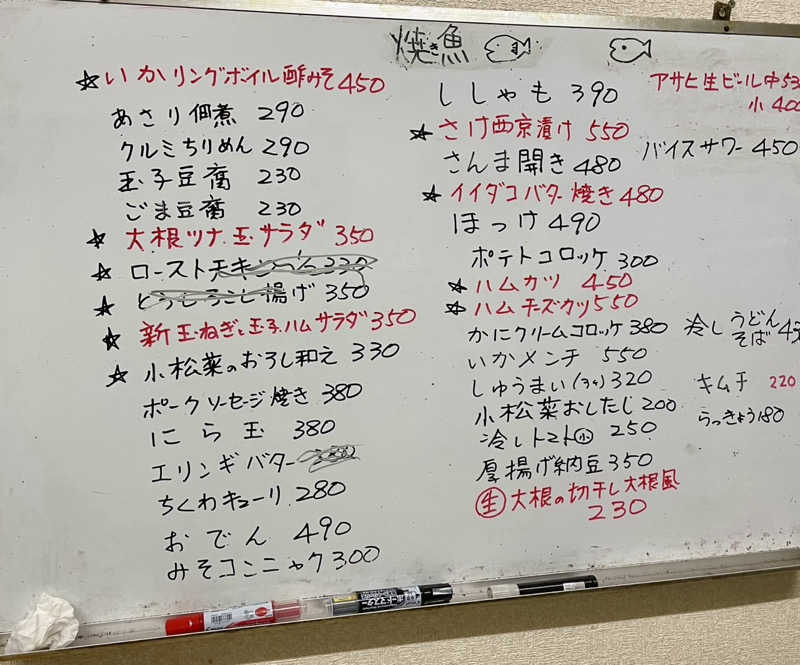 焼き魚
いかリングボイル酢みそ 450
あさり佃煮 290
クルミちりめん 290
玉子豆腐 230
ごま豆腐 230
大根ツナ玉サラダ 350
ロースト天 230
とうもろこし揚げ 350
新玉ねぎと玉子ハムサラダ 350
小松菜のおろし和え 330
ポークソーセージ焼き 380
にら玉 380
エリンギバター
ちくわキューリ 280
おでん 490
みそコンニャク 300
ししゃも 390
さけ西京漬け 550
さんま開き 480
イイダコバター焼き 480
ほっけ 490
ポテトコロッケ 300
ハムカツ 450
ハムチーズカツ 550
かにクリームコロッケ 380
いかメンチ 550
しゅうまい(3ケ) 320
小松菜おしたじ 200
冷しトマト 小 250
厚揚げ納豆 350
生 大根の切干し大根風
230
アサヒ生ビール中 53
小 400
バイスサワー 450
冷しうどん
そば 45
キムチ 220
らっきょう 180